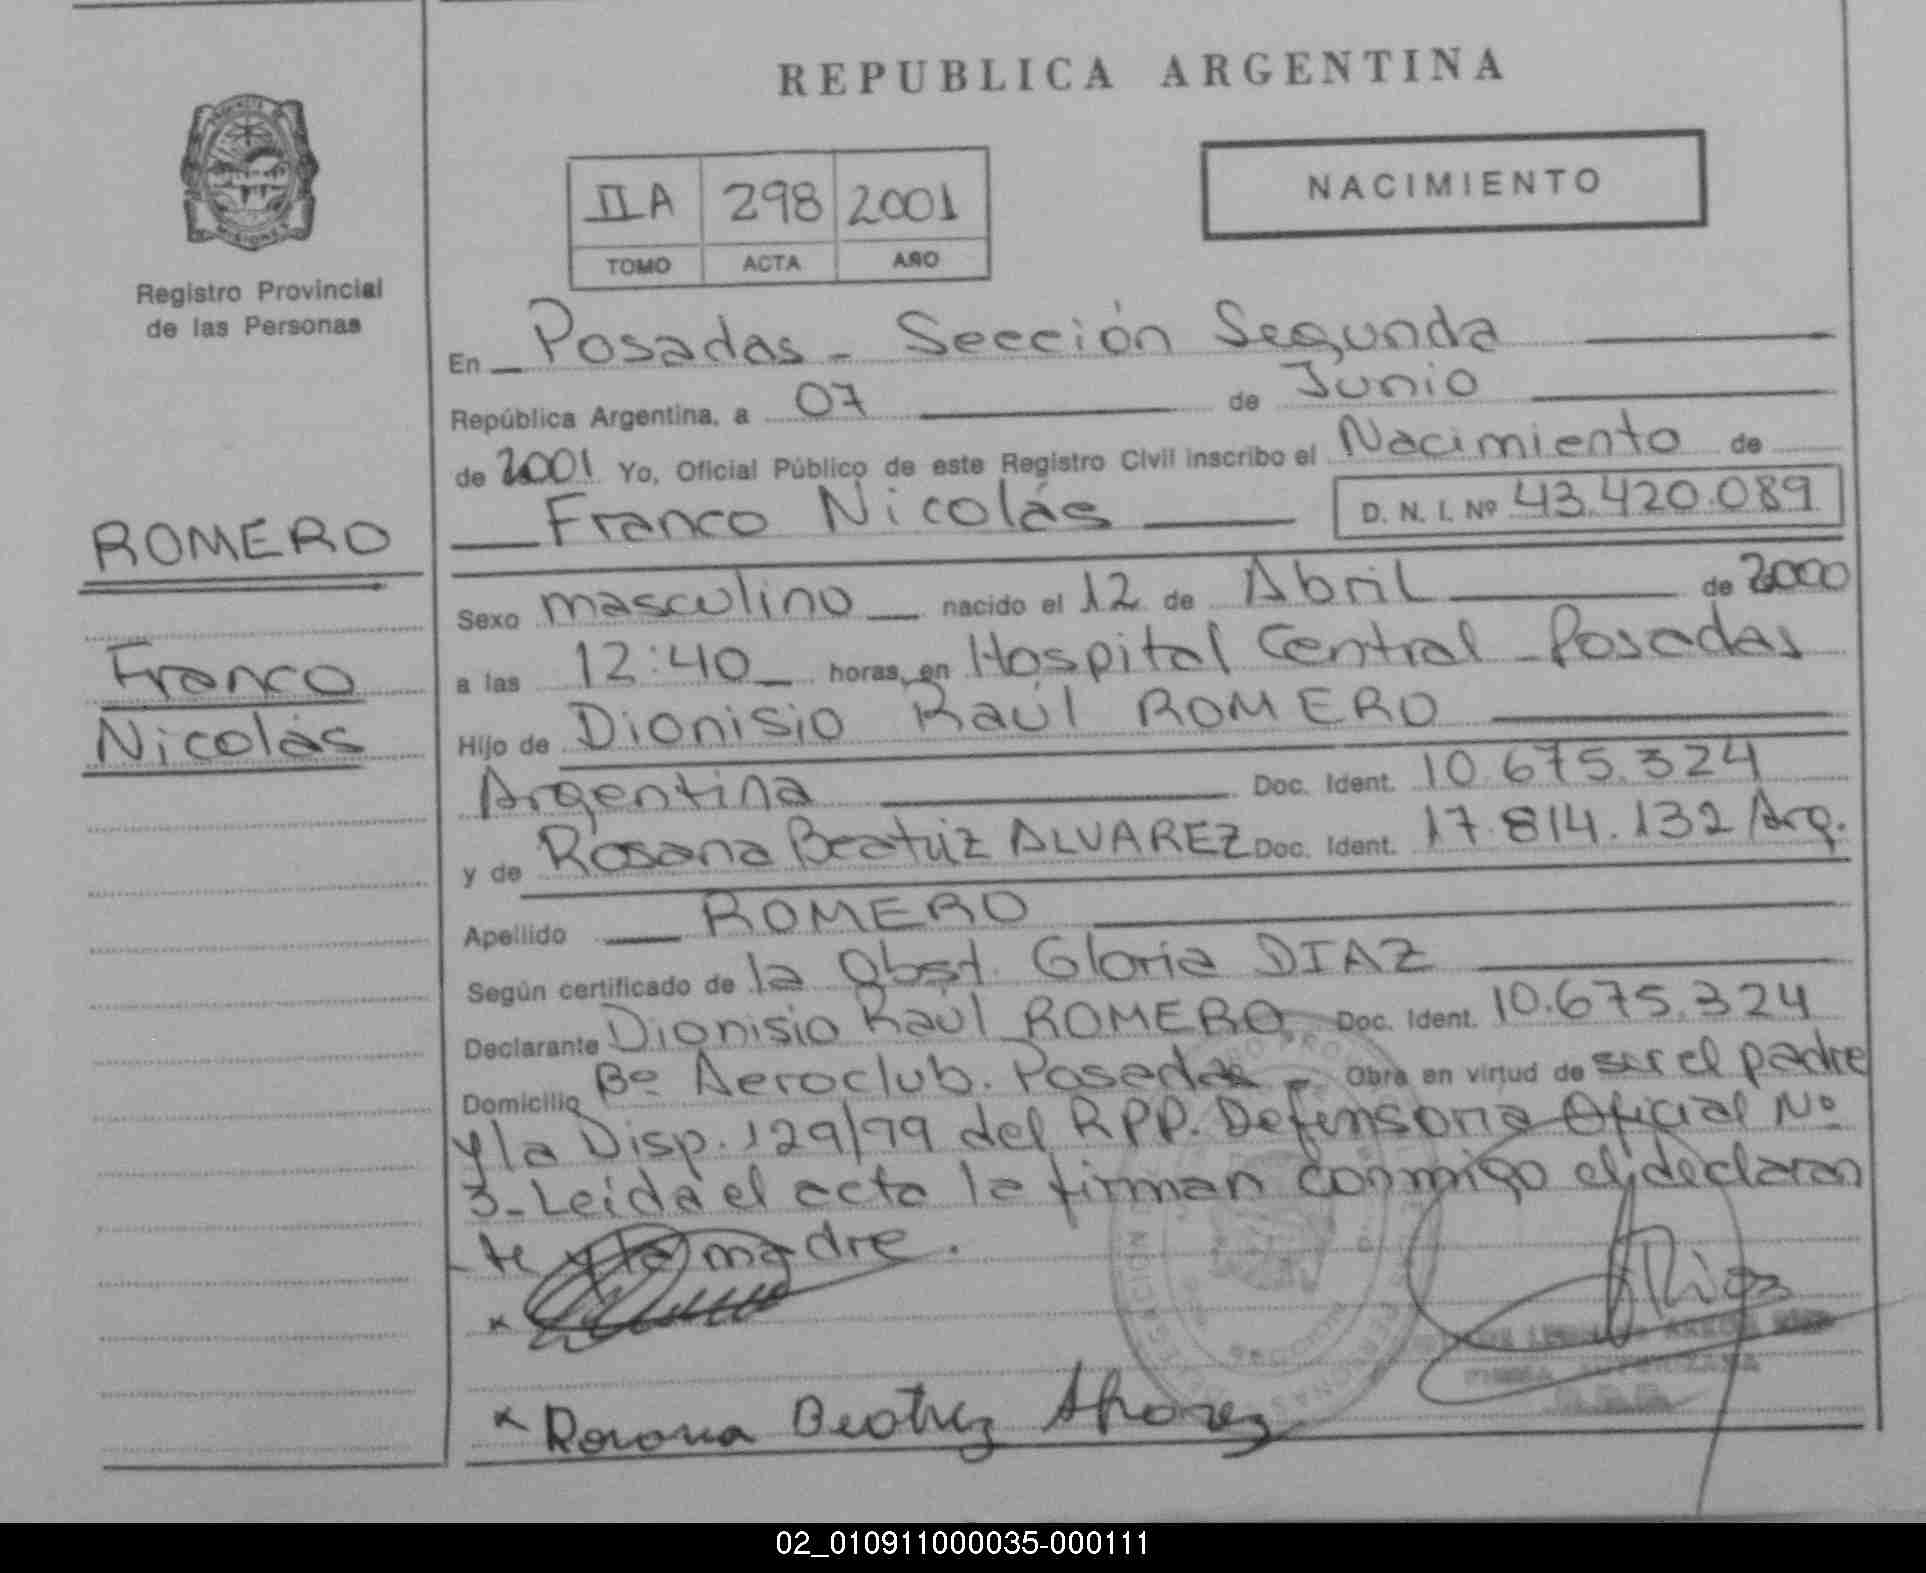 REPUBLICA ARGENTINA
MISIONES
Registro Provincial
de las Personas
IIA 298 2001
TOMO ACTA AÑO
NACIMIENTO
En Posadas - Sección Segunda
República Argentina, a 07 de Junio
de 2001 Yo, Oficial Público de este Registro Civil inscribo el Nacimiento de
Franco Nicolás D. N. I. Nº 43.420.089
ROMERO
Franco
Nicolás
Sexo masculino nacido el 12 de Abril de 2000
a las 12:40 horas, en Hospital Central - Posadas
Hijo de Dionisio Raúl ROMERO
Argentina Doc. Ident. 10.675.324
y de Rosana Beatriz ALVAREZ Doc. Ident. 17.814.132 Arg.
Apellido ROMERO
Según certificado de la Obst. Gloria DIAZ
Declarante Dionisio Raúl ROMERO Doc. Ident. 10.675.324
Domicilio Bº Aeroclub. Posadas - Obra en virtud de ser el padre
y la Disp. 129/99 del RPP. Defensoria Oficial Nº
3- Leida el acta la firman conmigo el declaran
te y la madre.
x
x Rosana Beatriz Alvarez
02_010911000035-000111